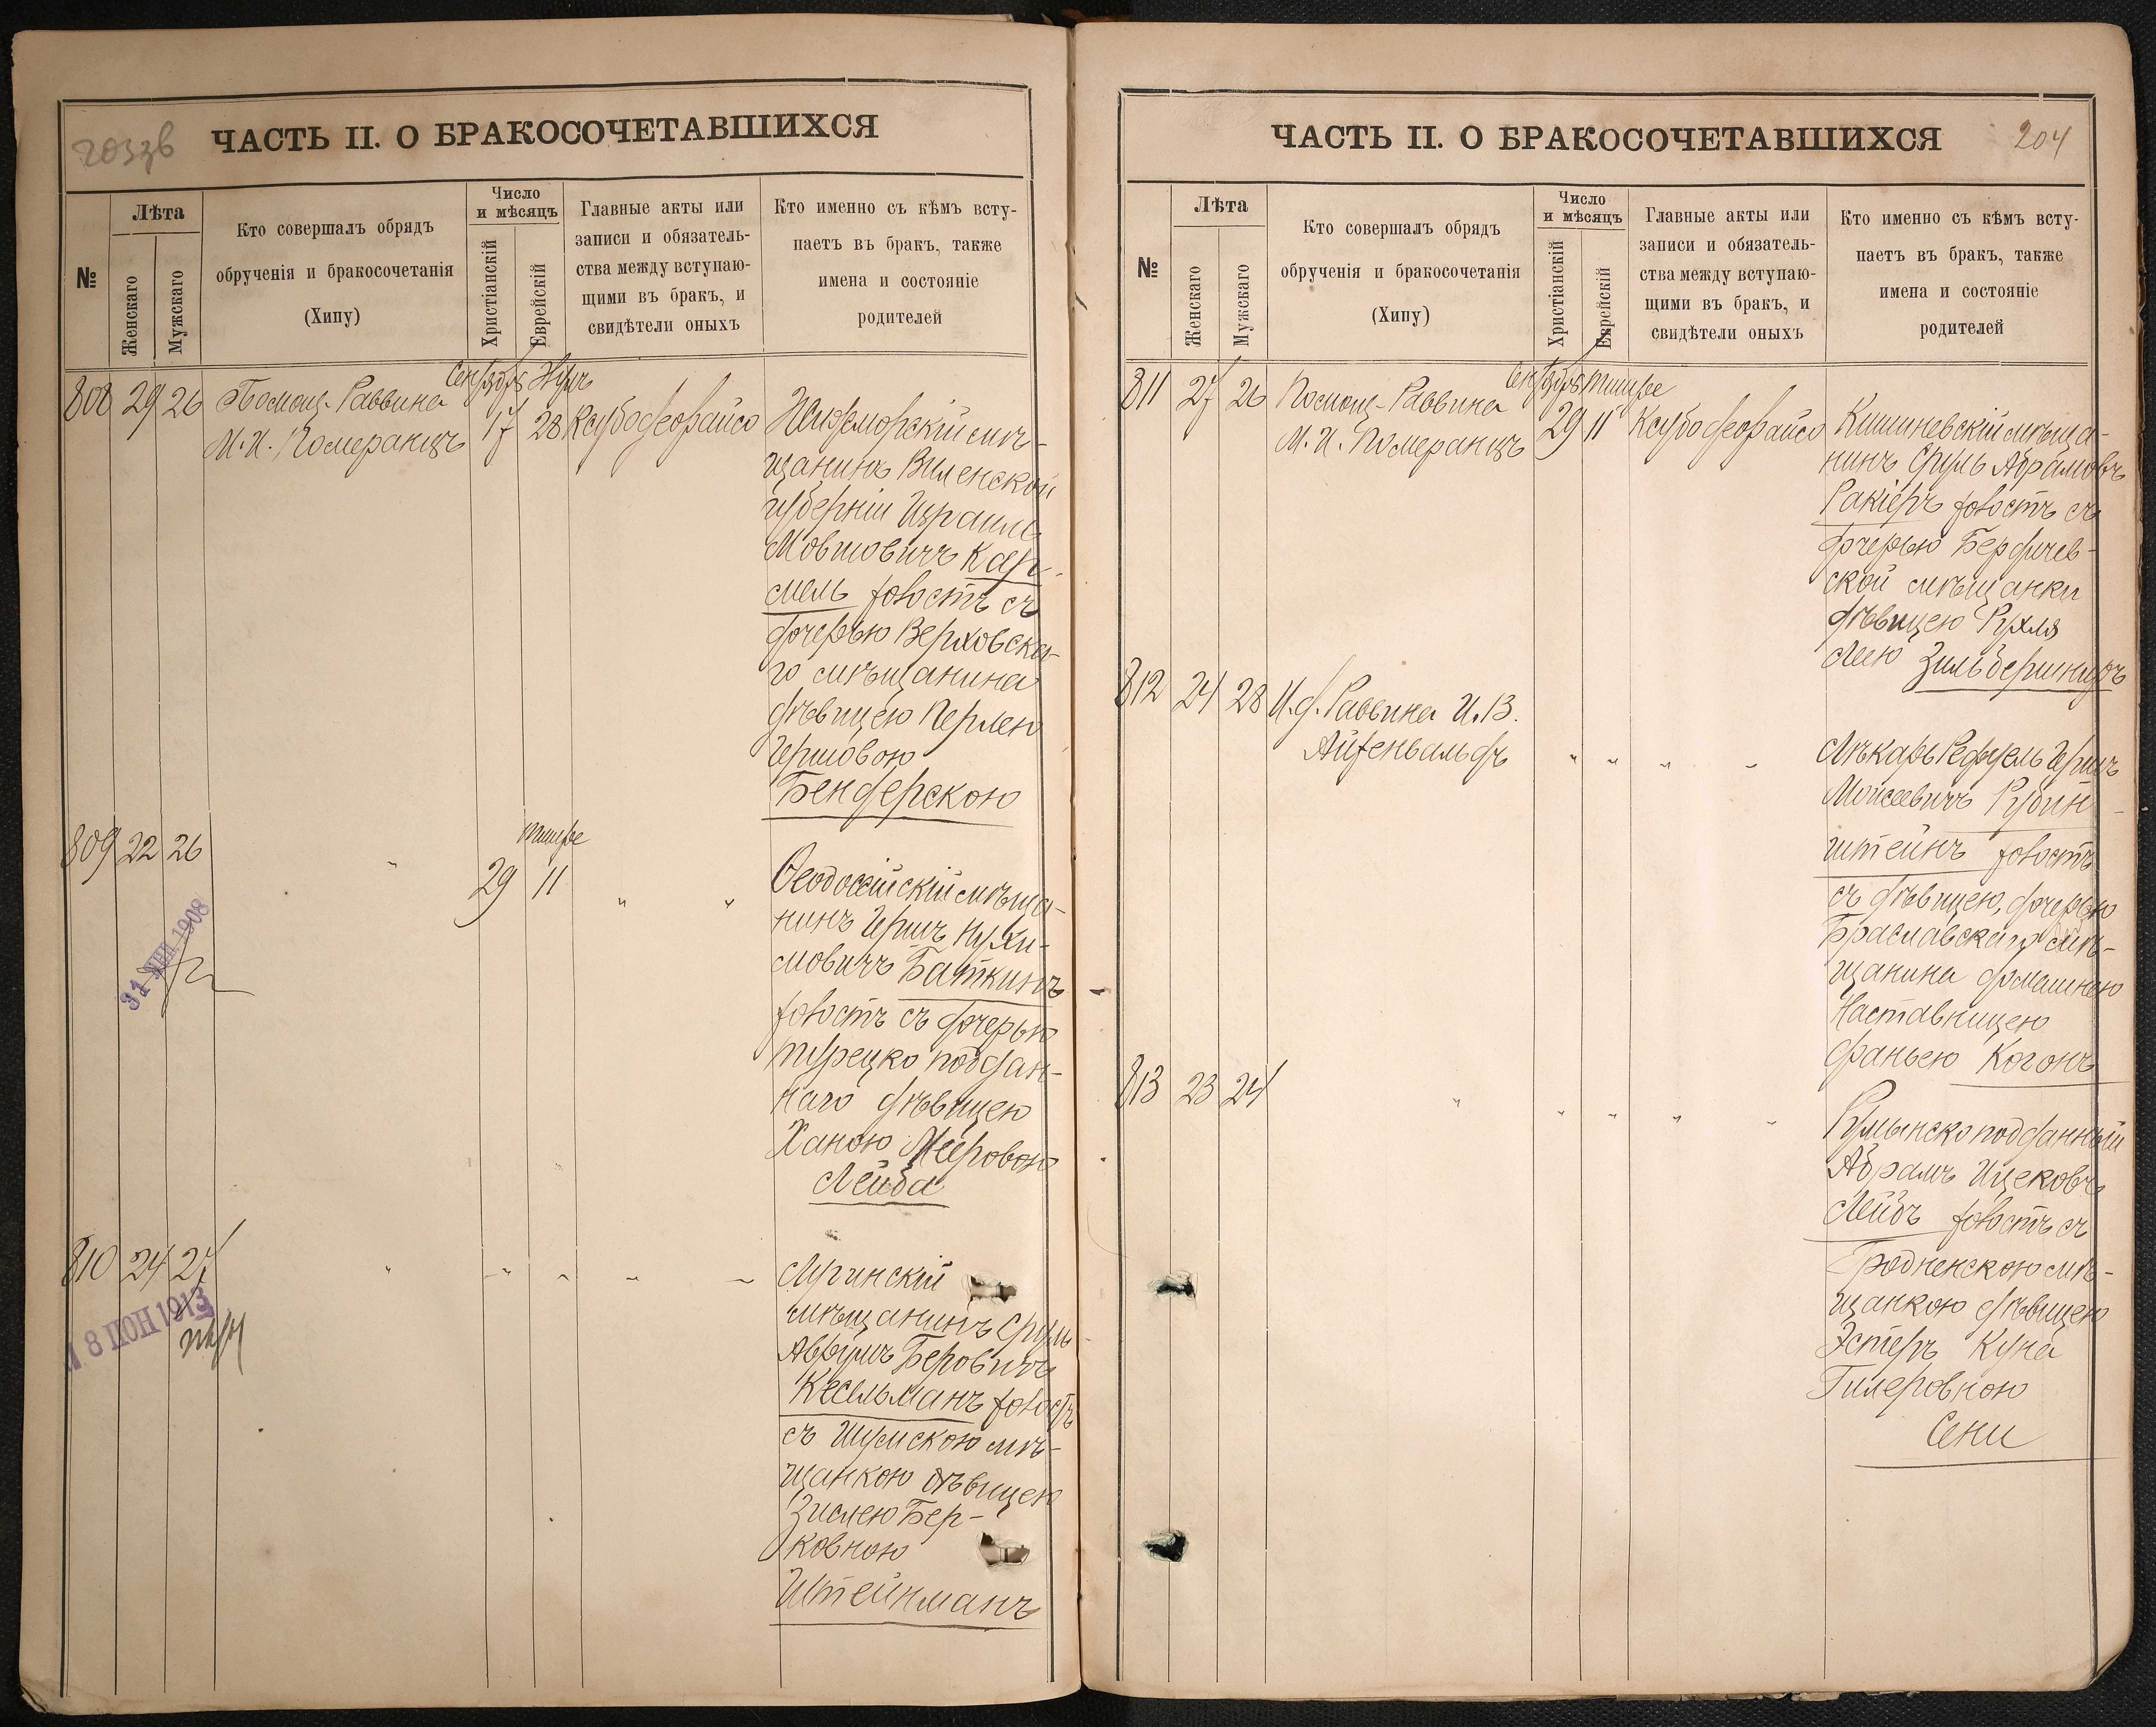 203зв
ЧАСТЬ II. О БРАКОСОЧЕТАВШИХСЯ
№
Лѣта
Женскаго
Мужскаго
Кто совершалъ обрядъ
обрученія и бракосочетанія
(Хипу)
Число
и мѣсяцъ
Христіанскій
Еврейскій
Главные акты или
записи и обязатель-
ства между вступаю-
щими въ бракъ, и
свидѣтели оныхъ
Кто именно съ кѣмъ всту-
паетъ въ бракъ, также
имена и состояніе
родителей
808 29 26
Помощ. Раввина
М. И. Померанцъ
Сентябрь
17 28
Ксубо деорайсо
мѣ-
щанинъ Виленской
губерніи Израиль
Мовшовичъ Кар-
мель холостъ съ
дочерью Верховска-
го мѣщанина
дѣвицею Перлею
Гершовою
Бендерскою
809 22 26
Тишре
29 11
" " "
Ѳеодосійскій мѣща-
нинъ Гершъ Нухи-
мовичъ Баткинъ
холостъ съ дочерью
турецко поддан-
наго дѣвицею
Ханою Мееровою
Лейба
31 1908
810 24 27
" " " " "
Лугинскій
мѣщанинъ Сруль
Аврумъ Беровичъ
Кесельманъ холостъ
съ Шумскою мѣ-
щанкою дѣвицею
Зислею Бер-
ковною
Штейнманъ
18 ІЮН 1913
ЧАСТЬ II. О БРАКОСОЧЕТАВШИХСЯ
204
№
Лѣта
Женскаго
Мужскаго
Кто совершалъ обрядъ
обрученія и бракосочетанія
(Хипу)
Число
и мѣсяцъ
Христіанскій
Еврейскій
Главные акты или
записи и обязатель-
ства между вступаю-
щими въ бракъ, и
свидѣтели оныхъ
Кто именно съ кѣмъ всту-
паетъ въ бракъ, также
имена и состояніе
родителей
811 27 26
Помощ. Раввина
М. И. Померанцъ
Сентябрь Тишре
29 11
Ксубо деорайсо
Кишиневскій мѣща-
нинъ Сруль Абрамовъ
Ракіеръ холостъ съ
дочерью Бердичев-
ской мѣщанки
дѣвицею Рухля
Леею Зильбершницъ
812 24 28
И. д. Раввина И. В.
Айзенвальдъ
" " " "
Лѣкарь Рефуель Гершъ
Моисеевичъ Рубин-
штейнъ холостъ
съ дѣвицею, дочерью
Браславскаго мѣ-
щанина домашнею
Наставницею
Фанъею Когонъ
813 23 24
" " " " "
Румынско подданный
Абрамъ Ицековъ
Лейбъ холостъ съ
Гродненскою мѣ-
щанкою дѣвицею
Эстеръ Куна
Гилеровною
Сени